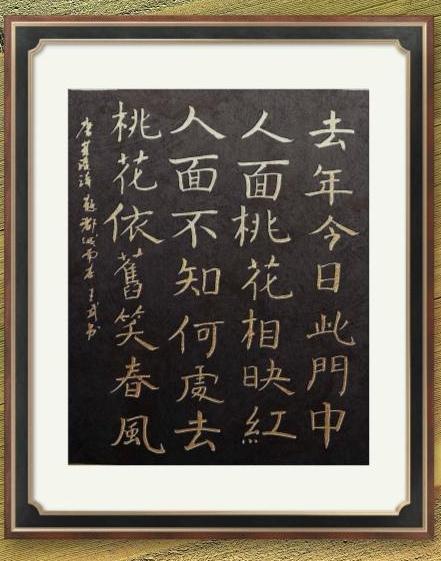 去年今日此門中
人面桃花相映紅
人面不知何處去
桃花依舊笑春風
唐崔護詩題都城南庄 王武书